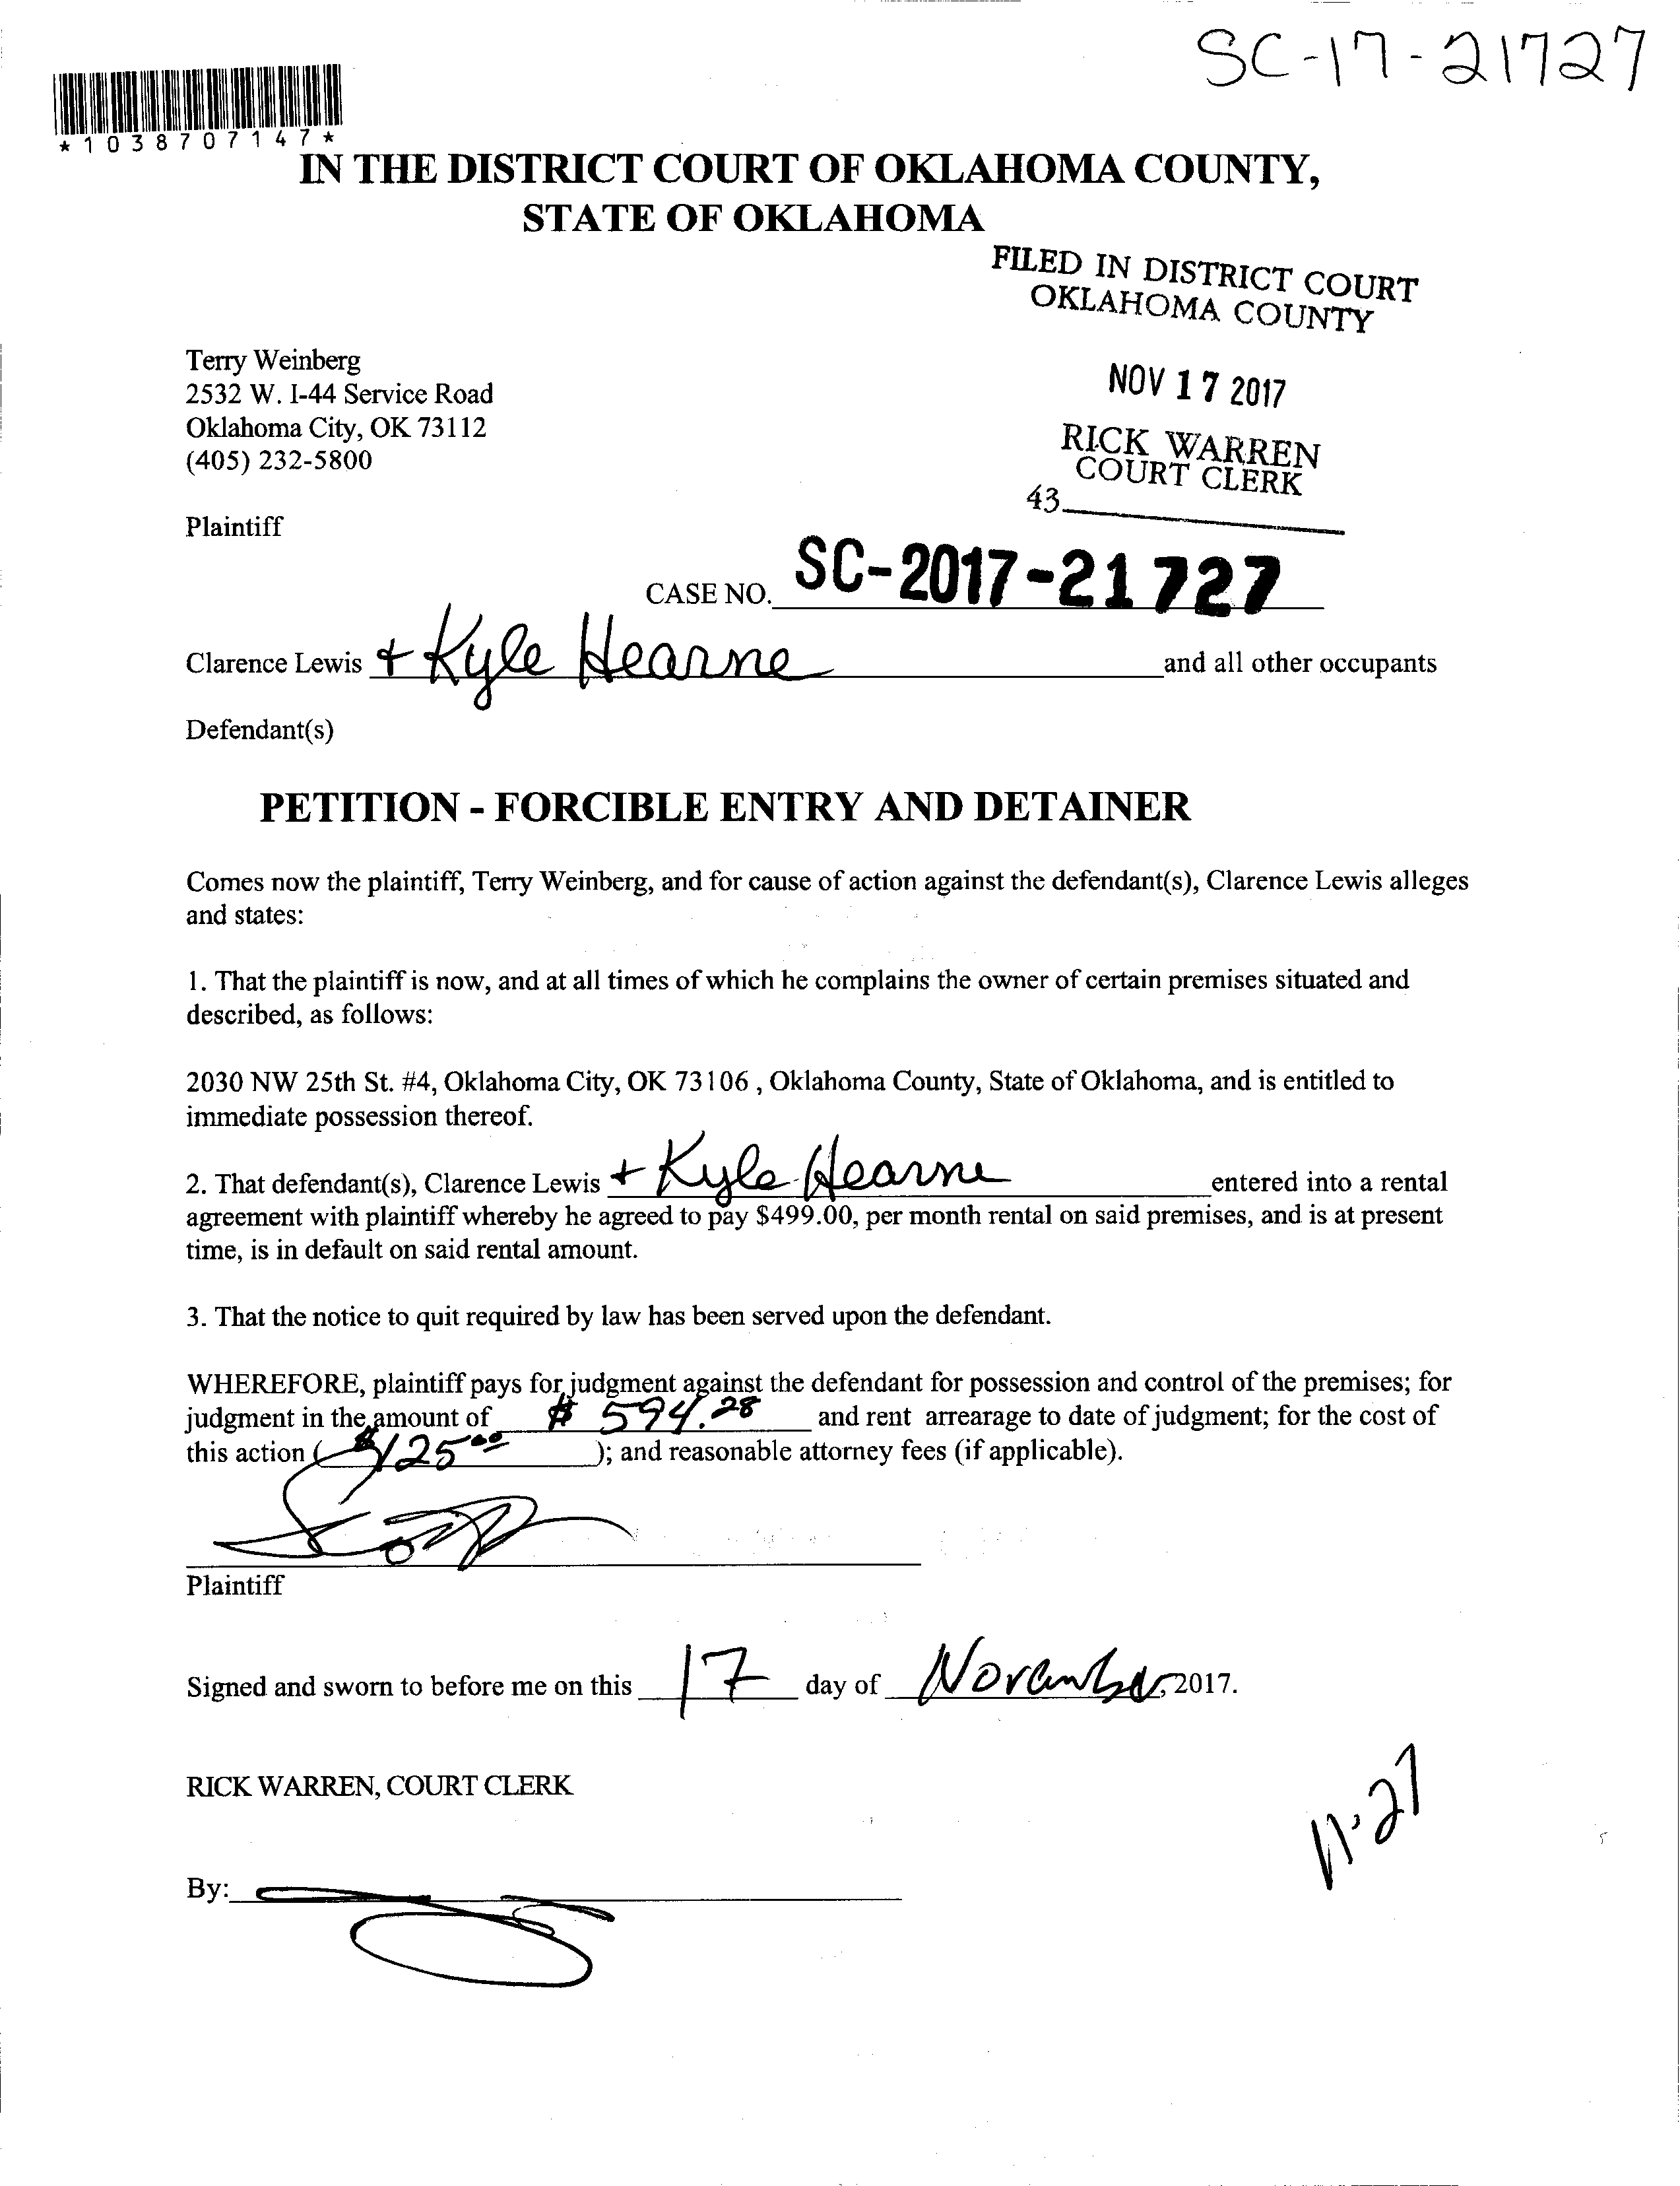 SC-17-21727
*1038707147*
IN THE DISTRICT COURT OF OKLAHOMA COUNTY,
STATE OF OKLAHOMA
FILED IN DISTRICT COURT
OKLAHOMA COUNTY
Terry Weinberg
2532 W. I-44 Service Road
Oklahoma City, OK 73112
(405) 232-5800
NOV 17 2017
RICK WARREN
COURT CLERK
43
Plaintiff
CASE NO. SC-2017-21727
Clarence Lewis + Kyle Hearne and all other occupants
Defendant(s)
PETITION - FORCIBLE ENTRY AND DETAINER
Comes now the plaintiff, Terry Weinberg, and for cause of action against the defendant(s), Clarence Lewis alleges
and states:
1. That the plaintiff is now, and at all times of which he complains the owner of certain premises situated and
described, as follows:
2030 NW 25th St. #4, Oklahoma City, OK 73106 , Oklahoma County, State of Oklahoma, and is entitled to
immediate possession thereof.
2. That defendant(s), Clarence Lewis + Kyle Hearne entered into a rental
agreement with plaintiff whereby he agreed to pay $499.00, per month rental on said premises, and is at present
time, is in default on said rental amount.
3. That the notice to quit required by law has been served upon the defendant.
WHEREFORE, plaintiff pays for judgment against the defendant for possession and control of the premises; for
judgment in the amount of $ 594.28 and rent arrearage to date of judgment; for the cost of
this action ( $125.00 ); and reasonable attorney fees (if applicable).
Plaintiff
Signed and sworn to before me on this 17 day of November, 2017.
RICK WARREN, COURT CLERK
11.27
By: